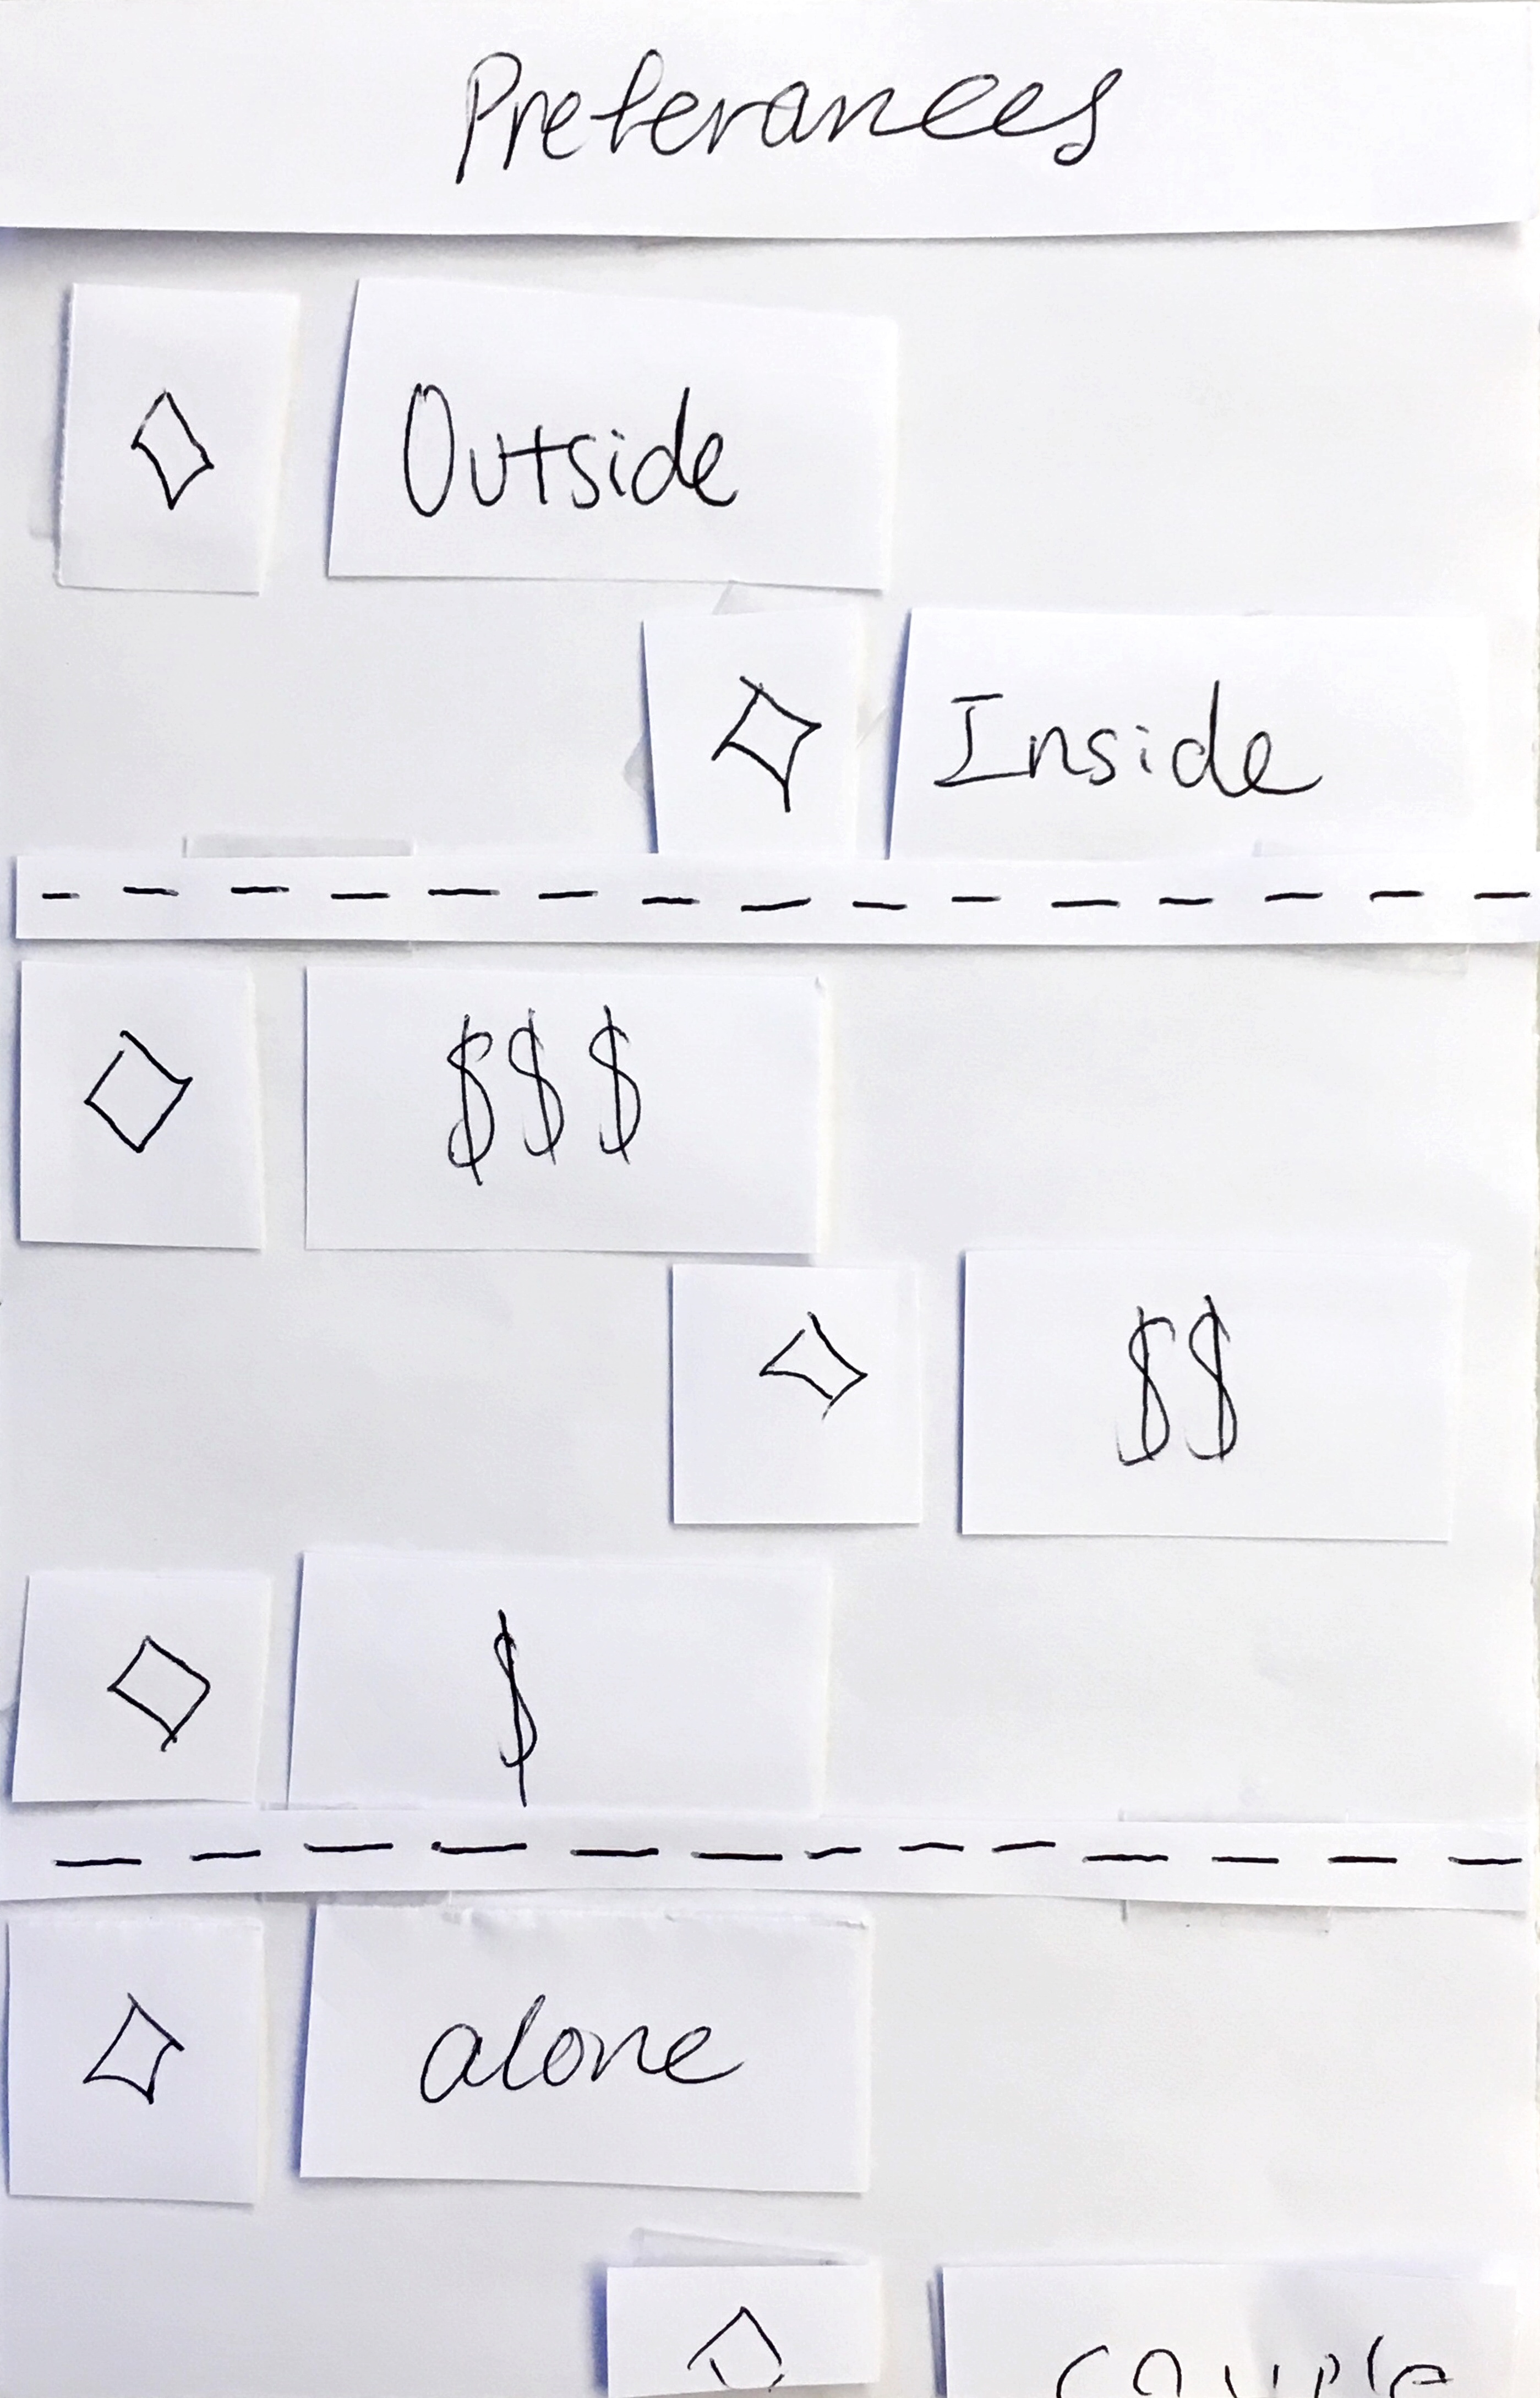 Preferances
Outside
Inside
$$$
$$
$
alone
couple